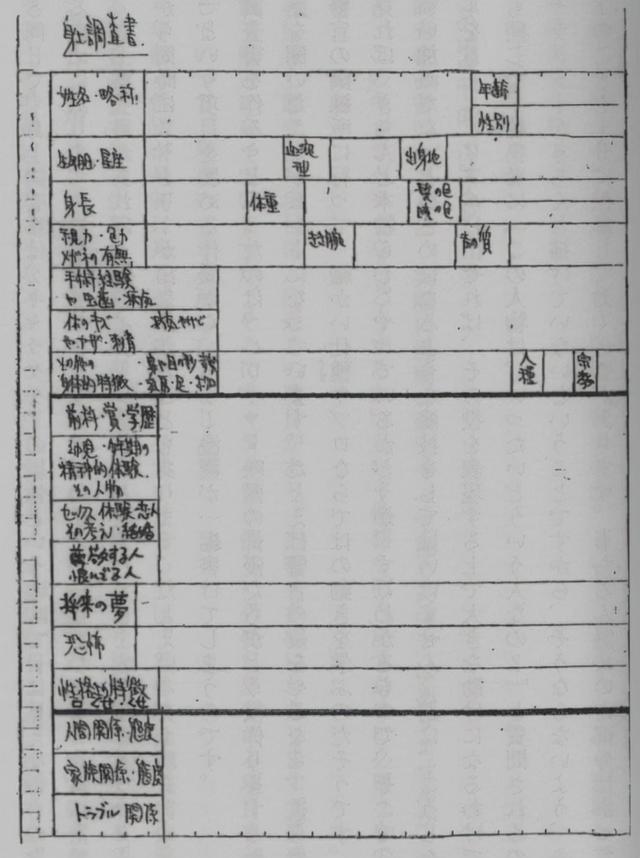 身上調査書
姓名・略称
年齢
性別
生年月日・星座
血液型
出身地
身長
体重
髪の色
瞳の色
視力・色力
メガネの有無
利き腕
声の質
手術経験
や虫歯・病気
体のキズ
やアザ・刺青
その他の
身体的特徴
人種
宗教
前科・賞・学歴
幼児・少年期の
精神的体験
その人物
セックス体験・恋人
その考え・結婚
尊敬する人
恨んでる人
将来の夢
恐怖
性格的特徴
口ぐせ・くせ
人間関係・態度
家族関係・態度
トラブル関係